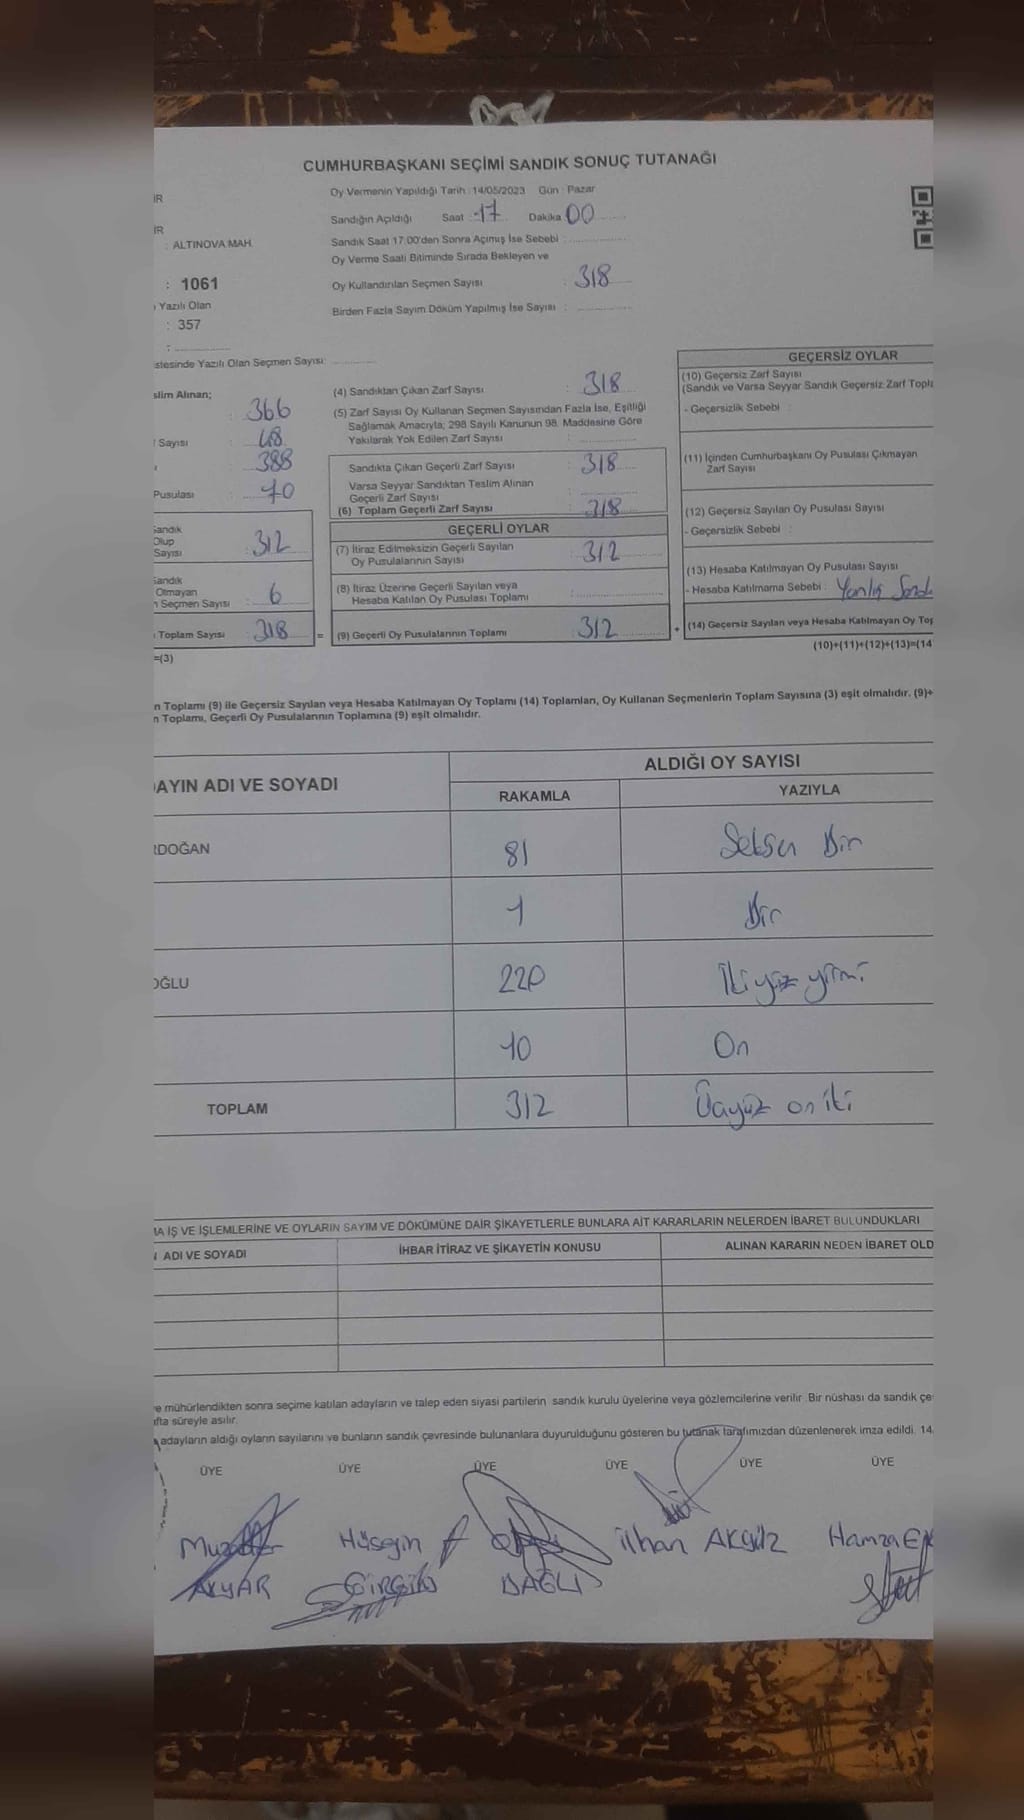 CUMHURBAŞKANI SEÇİMİ SANDIK SONUÇ TUTANAĞI
İR
Oy Vermenin Yapıldığı Tarih : 14/05/2023 Gün : Pazar
Sandığın Açıldığı Saat : 17 Dakika 00
İR
: ALTINOVA MAH.
Sandık Saat 17:00'den Sonra Açmış İse Sebebi :
Oy Verme Saati Bitiminde Sırada Bekleyen ve
Oy Kullandırılan Seçmen Sayısı : 318
: 1061
Birden Fazla Sayım Döküm Yapılmış İse Sayısı :
Yazılı Olan
: 357
:
stesinde Yazılı Olan Seçmen Sayısı:
slim Alınan;
: 366
Sayısı : 48
388
Pusulası : 70
Sandık
Olup
Sayısı : 312
Sandık
Olmayan
n Seçmen Sayısı : 6
Toplam Sayısı 318 =
=(3)
(4) Sandıktan Çıkan Zarf Sayısı : 318
(5) Zarf Sayısı Oy Kullanan Seçmen Sayısından Fazla İse, Eşitliği
Sağlamak Amacıyla; 298 Sayılı Kanunun 98. Maddesine Göre
Yakılarak Yok Edilen Zarf Sayısı :
Sandıkta Çıkan Geçerli Zarf Sayısı : 318
Varsa Seyyar Sandıktan Teslim Alınan
Geçerli Zarf Sayısı :
(6) Toplam Geçerli Zarf Sayısı : 318
GEÇERLİ OYLAR
(7) İtiraz Edilmeksizin Geçerli Sayılan
Oy Pusulalarının Sayısı : 312
(8) İtiraz Üzerine Geçerli Sayılan veya
Hesaba Katılan Oy Pusulası Toplamı :
(9) Geçerli Oy Pusulalarının Toplamı : 312 +
GEÇERSİZ OYLAR
(10) Geçersiz Zarf Sayısı
(Sandık ve Varsa Seyyar Sandık Geçersiz Zarf Topla
- Geçersizlik Sebebi :
(11) İçinden Cumhurbaşkanı Oy Pusulası Çıkmayan
Zarf Sayısı
(12) Geçersiz Sayılan Oy Pusulası Sayısı
- Geçersizlik Sebebi :
(13) Hesaba Katılmayan Oy Pusulası Sayısı
- Hesaba Katılmama Sebebi : Yanlış Sandı
(14) Geçersiz Sayılan veya Hesaba Katılmayan Oy Top
(10)+(11)+(12)+(13)=(14
n Toplamı (9) ile Geçersiz Sayılan veya Hesaba Katılmayan Oy Toplamı (14) Toplamları, Oy Kullanan Seçmenlerin Toplam Sayısına (3) eşit olmalıdır. (9)+
n Toplamı, Geçerli Oy Pusulalarının Toplamına (9) eşit olmalıdır.
AYIN ADI VE SOYADI
ALDIĞI OY SAYISI
RAKAMLA YAZIYLA
RDOĞAN 81 Seksen Bir
1 Bir
OĞLU 220 İkiyüz yirmi
10 On
TOPLAM 312 Üçyüz on iki
MA İŞ VE İŞLEMLERİNE VE OYLARIN SAYIM VE DÖKÜMÜNE DAİR ŞİKAYETLERLE BUNLARA AİT KARARLARIN NELERDEN İBARET BULUNDUKLARI
ADI VE SOYADI İHBAR İTİRAZ VE ŞİKAYETİN KONUSU ALINAN KARARIN NEDEN İBARET OLD
e mühürlendikten sonra seçime katılan adayların ve talep eden siyasi partilerin sandık kurulu üyelerine veya gözlemcilerine verilir. Bir nüshası da sandık çe
afta süreyle asılır.
adayların aldığı oyların sayılarını ve bunların sandık çevresinde bulunanlara duyurulduğunu gösteren bu tutanak tarafımızdan düzenlenerek imza edildi. 14
ÜYE ÜYE ÜYE ÜYE ÜYE ÜYE
Hüseyin İlhan AKGÜZ Hamza
AKYAR GİRGİN DAĞLI